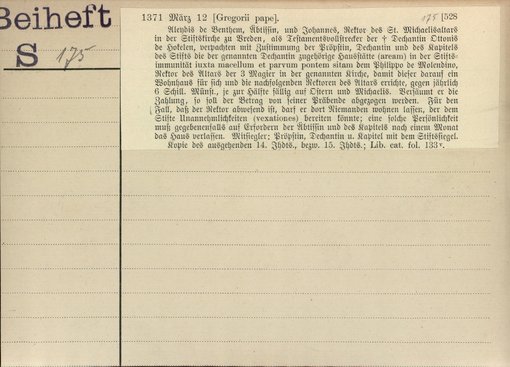 Beiheft
S 175
1371 März 12 [Gregorii pape]. 175 [528
Aleydis de Benthem, Äbtissin, und Johannes, Rektor des St. Michaelisaltars
in der Stiftskirche zu Vreden, als Testamentsvollstrecker der † Dechantin Ottonis
de Hokelen, verpachten mit Zustimmung der Pröpstin, Dechantin und des Kapitels
des Stifts die der genannten Dechantin zugehörige Hausstätte (aream) in der Stifts-
immunität iuxta macellum et parvum pontem sitam dem Philippo de Molendino,
Rektor des Altars der 3 Magier in der genannten Kirche, damit dieser darauf ein
Wohnhaus für sich und die nachfolgenden Rektoren des Altars errichte, gegen jährlich
6 Schill. Münst., je zur Hälfte fällig auf Ostern und Michaelis. Versäumt er die
Zahlung, so soll der Betrag von seiner Präbende abgezogen werden. Für den
Fall, daß der Rektor abwesend ist, darf er dort Niemanden wohnen lassen, der dem
Stifte Unannehmlichkeiten (vexationes) bereiten könnte; eine solche Persönlichkeit
muß gegebenenfalls auf Erfordern der Äbtissin und des Kapitels nach einem Monat
das Haus verlassen. Mitsiegler: Pröpstin, Dechantin u. Kapitel mit dem Stiftssiegel.
Kopie des ausgehenden 14. Jhdts., bezw. 15. Jhdts.; Lib. cat. fol. 133v.